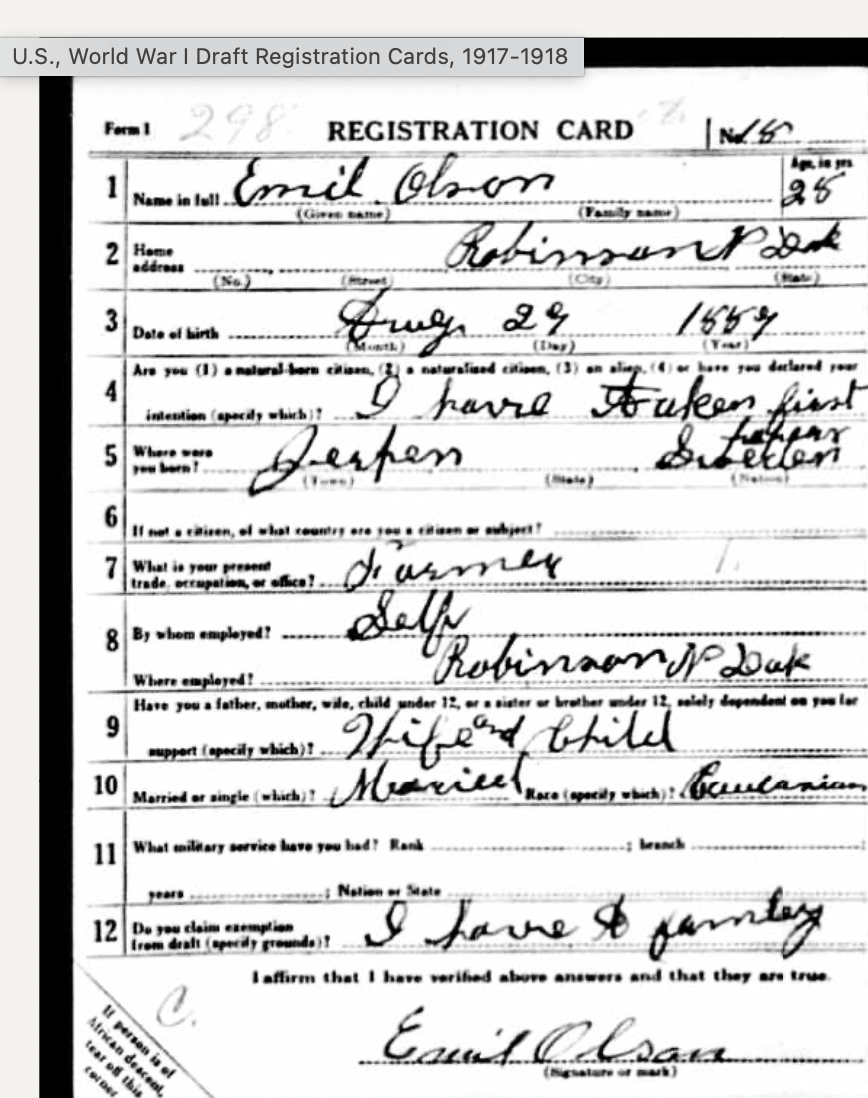 U.S., World War I Draft Registration Cards, 1917-1918
Form 1 298 REGISTRATION CARD No. 15
1 Name in full Emil Olson Age, in yrs. 28
(Given name) (Family name)
2 Home address Robinson N Dak
(No.) (Street) (City) (State)
3 Date of birth Aug. 29 1889
(Month) (Day) (Year)
4 Are you (1) a natural-born citizen, (2) a naturalized citizen, (3) an alien, (4) or have you declared your
intention (specify which)? I have Taken first papers
5 Where were you born? Jerpen Sweden
(Town) (State) (Nation)
6 If not a citizen, of what country are you a citizen or subject?
7 What is your present trade, occupation, or office? Farmer
8 By whom employed? Self
Where employed? Robinson N Dak
9 Have you a father, mother, wife, child under 12, or a sister or brother under 12, solely dependent on you for
support (specify which)? Wife and Child
10 Married or single (which)? Married Race (specify which)? Caucasian
11 What military service have you had? Rank ; branch ;
years ; Nation or State
12 Do you claim exemption from draft (specify grounds)? I have A famley
I affirm that I have verified above answers and that they are true.
C.
Emil Olson
(Signature or mark)
If person is of
African descent,
tear off this
corner